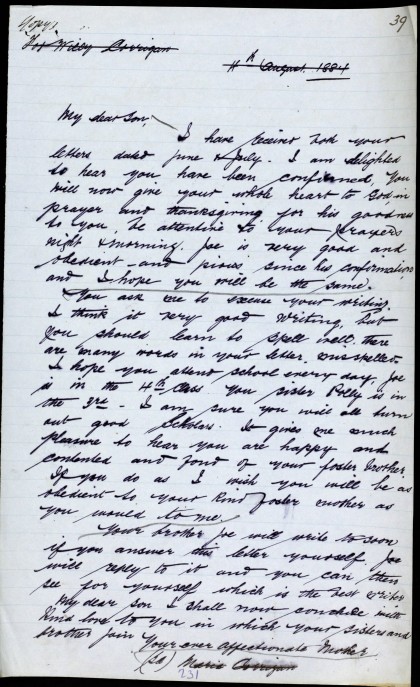 (Copy)
39
For Willy Corrigan
11th August 1884
My dear Son,
I have receivd both your
letters dated June & July. I am delighted
to hear you have been confirmed, you
will now give your whole heart to God in
prayer and thanksgiving for his goodness
to you, be attentive to your prayers
night & morning. Joe is very good and
obedient and pious since his confirmation
and I hope you will be the same.
You ask me to excuse your writing.
I think it very good writing, but
you should learn to spell well. there
are many words in your letter misspelled.
I hope you attend school every day, Joe
is in the 4th Class you sister Polly is in
the 3rd. I am sure you will all turn
out good Scholars. It gives me much
pleasure to hear you are happy and
contented and fond of your foster Mother
If you do as I wish you will be as
obedient to your kind foster mother as
you would to me.
Your brother Joe will write to soon
if you answer this letter yourself. Joe
will reply to it and you can then
see for yourself which is the best writer
My dear son I shall now conclude with
kind love to you in which your sisters and
brother join
Your ever affectionate Mother
(Sd) Maria Corrigan
231